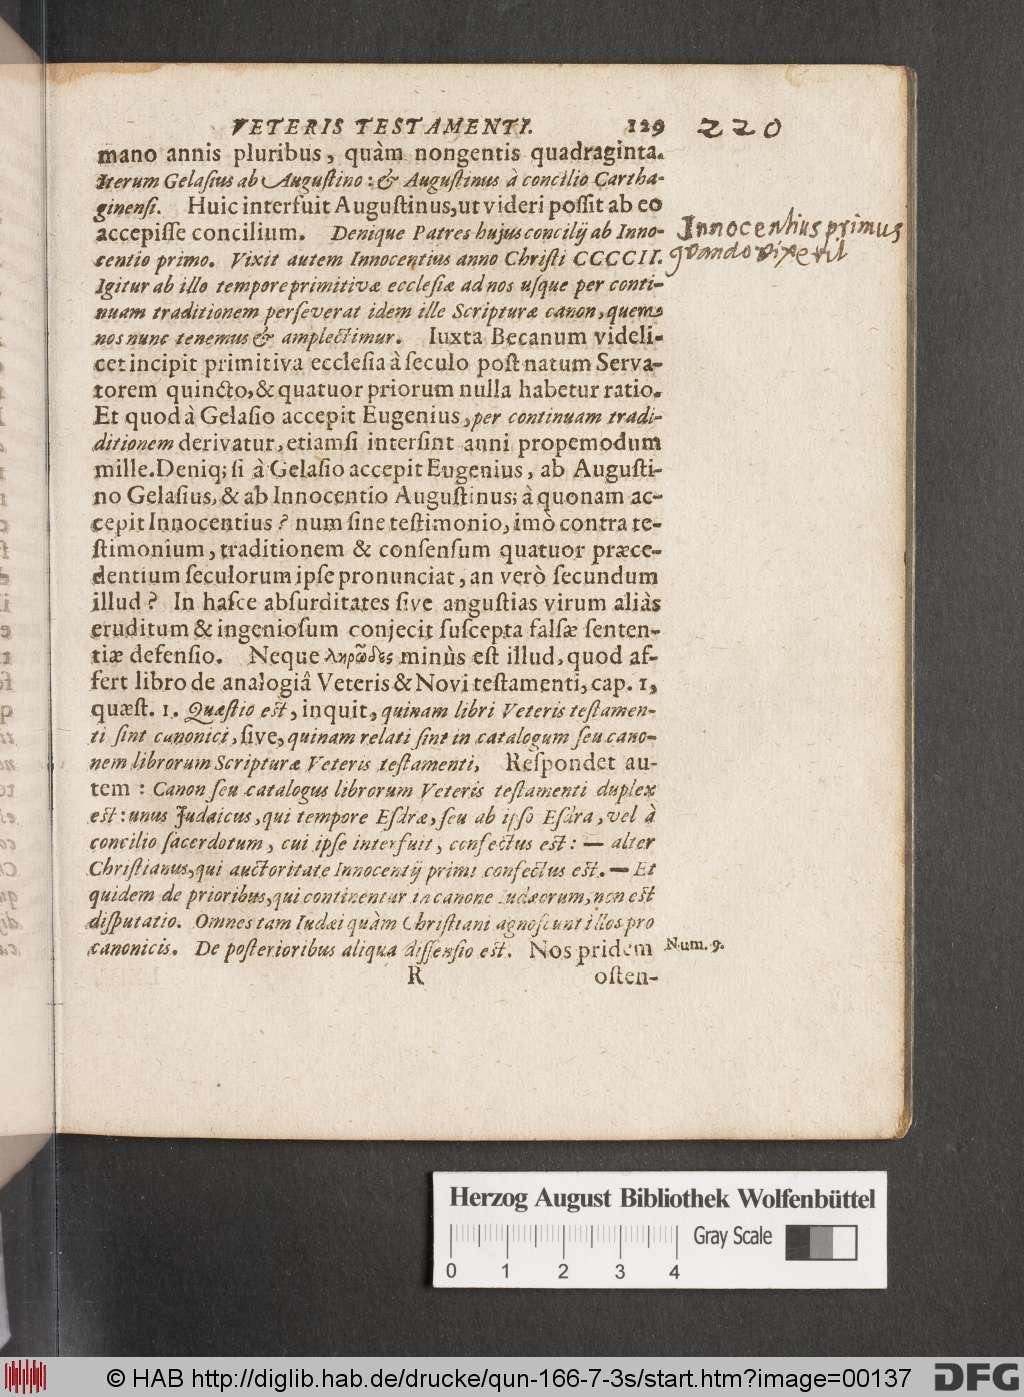 VETERIS TESTAMENTI. 129 220
mano annis pluribus, quàm nongentis quadraginta.
Iterum Gelaſius ab Auguſtino: & Auguſtinus à concilio Cartha-
ginenſi. Huic interfuit Auguſtinus, ut videri poſſit ab eo
accepiſſe concilium. Denique Patres hujus concilij ab Inno-
centio primo. Vixit autem Innocentius anno Chriſti CCCCII.
Innocentius primus
quando vixerit
Igitur ab illo tempore primitivæ eccleſiæ ad nos uſque per conti-
nuam traditionem perſeverat idem ille Scripturæ canon, quem
nos nunc tenemus & amplectimur. Iuxta Becanum videli-
cet incipit primitiva eccleſia à ſeculo poſt natum Serva-
torem quincto, & quatuor priorum nulla habetur ratio.
Et quod à Gelaſio accepit Eugenius, per continuam tradi-
ditionem derivatur, etiamſi interſint anni propemodum
mille. Deniq; ſi à Gelaſio accepit Eugenius, ab Auguſti-
no Gelaſius, & ab Innocentio Auguſtinus; à quonam ac-
cepit Innocentius? num ſine teſtimonio, imò contra te-
ſtimonium, traditionem & conſenſum quatuor præce-
dentium ſeculorum ipſe pronunciat, an verò ſecundum
illud? In haſce abſurditates ſive anguſtias virum aliàs
eruditum & ingenioſum conjecit ſuſcepta falſæ ſenten-
tiæ defenſio. Neque ληρῶδες minùs eſt illud, quod af-
fert libro de analogiâ Veteris & Novi teſtamenti, cap. 1,
quæſt. 1. Quæſtio eſt, inquit, quinam libri Veteris teſtamen-
ti ſint canonici, ſive, quinam relati ſint in catalogum ſeu cano-
nem librorum Scripturæ Veteris teſtamenti, Reſpondet au-
tem: Canon ſeu catalogus librorum Veteris teſtamenti duplex
eſt: unus Judaicus, qui tempore Eſdræ, ſeu ab ipſo Eſdra, vel à
concilio ſacerdotum, cui ipſe interfuit, confectus eſt: — alter
Chriſtianus, qui auctoritate Innocentij primi confectus eſt. — Et
quidem de prioribus, qui continentur in canone Iudæorum, non eſt
diſputatio. Omnes tam Iudæi quàm Chriſtiani agnoſcunt illos pro
canonicis. De poſterioribus aliqua diſſenſio eſt. Nos pridem
Num. 9.
R oſten-
Herzog August Bibliothek Wolfenbüttel
Gray Scale
0 1 2 3 4
© HAB http://diglib.hab.de/drucke/qun-166-7-3s/start.htm?image=00137
DFG